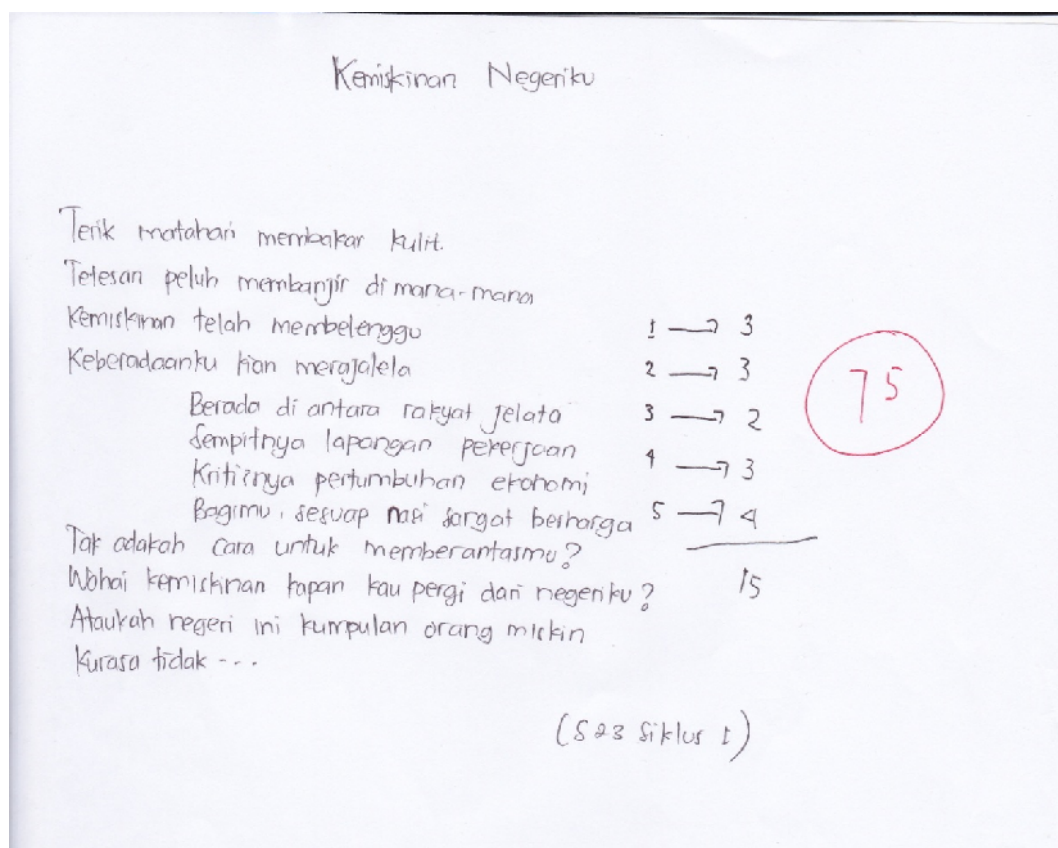 Kemiskinan Negeriku
Terik matahari membakar kulit.
Tetesan peluh membanjir di mana-mana
Kemiskinan telah membelenggu
1 → 3
Keberadaanku kian merajalela
2 → 3
75
Berada di antara rakyat jelata
3 → 2
Sempitnya lapangan pekerjaan
4 → 3
Kritisnya pertumbuhan ekonomi
Bagimu, sesuap nasi sangat berharga
5 → 4
Tak adakah cara untuk memberantasmu?
Wahai kemiskinan kapan kau pergi dari negeriku?
15
Ataukah negeri ini kumpulan orang miskin
Kurasa tidak ---
(S23 Siklus I)